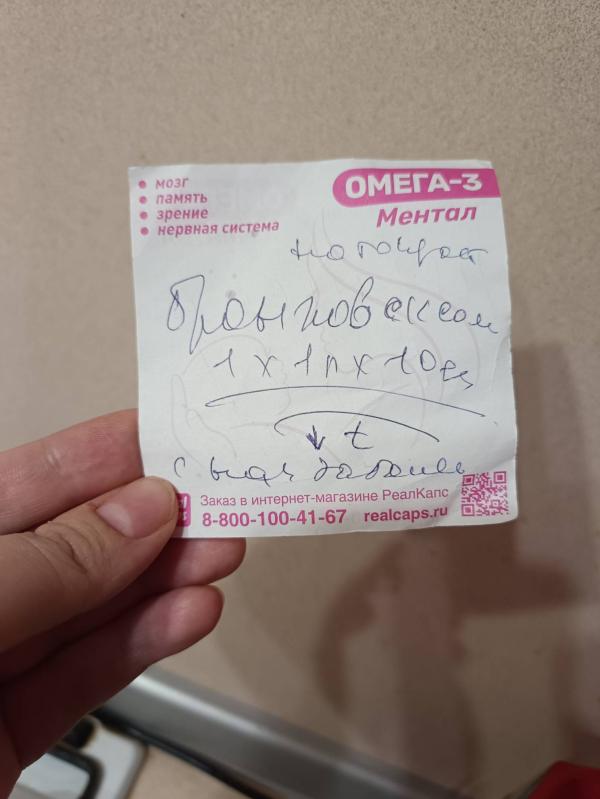 • мозг
• память
• зрение
• нервная система
ОМЕГА-3
Ментал
Бронховаксом
1 х 1п х 10
↓ t
с
Заказ в интернет-магазине РеалКапс
8-800-100-41-67 realcaps.ru